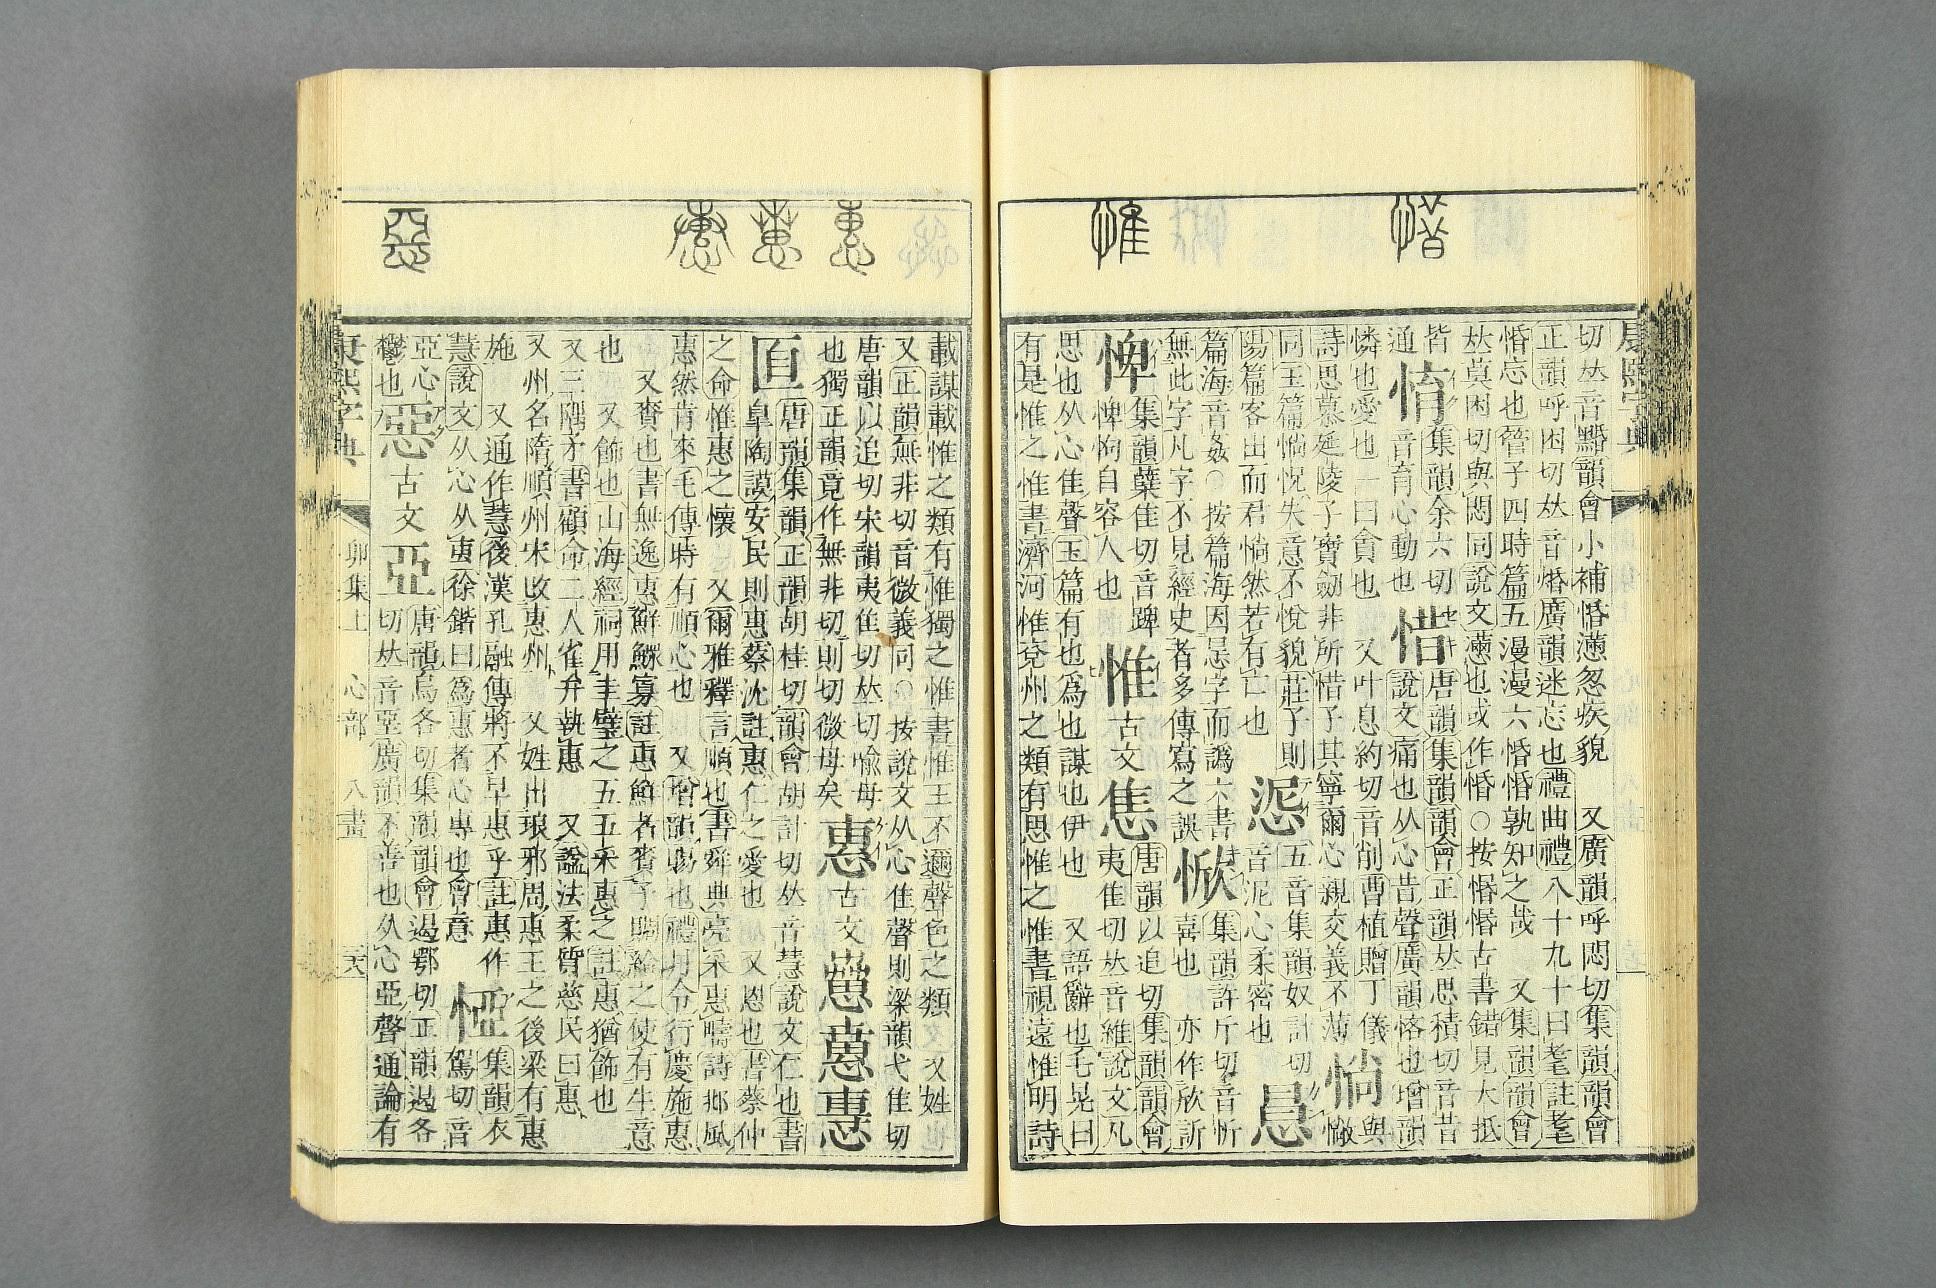 惜
惟
切𠀤音黯韻會小補惛懣忽疾貌 又廣韻呼悶切集韻韻會
正韻呼困切𠀤音惛廣韻迷忘也禮曲禮八十九十曰耄註耄
惛忘也管子四時篇五漫漫六惛惛孰知之哉 又集韻韻會
𠀤莫困切與悶同說文懣也或作惛○按惽惛古書錯見大抵
皆通
惰
集韻余六切音育心動也
惜
唐韻集韻韻會正韻𠀤思積切音昔
說文痛也从心昔聲廣韻悋也增韻
憐也愛也一曰貪也 又叶息約切音削曹植贈丁儀
詩思慕延陵子寶劒非所惜子其寧爾心親交義不薄
惝
與
惝
同玉篇惝怳失意不悅貌莊子則
陽篇客出而君惝然若有亡也
惄
五音集韻奴計切
音泥心柔密也
㤙
篇海音姦○按篇海因忌字而譌六書
無此字凡字不見經史者多傳寫之誤
惞
集韻許斤切音忻
喜也 亦作欣訢
惟
集韻蘗佳切音踓
㥏恟自容入也
惟
古文
㥞
唐韻以追切集韻韻會
夷隹切𠀤音維說文凡
思也从心隹聲玉篇有也爲也謀也伊也 又語辭也毛晃曰
有是惟之惟書濟河惟兗州之類有思惟之惟書視遠惟明詩
惠
惪
載謀載惟之類有惟獨之惟書惟王不邇聲色之類 又姓
又正韻無非切音微義同○按說文从心隹聲則梁韻弋隹切
唐韻以追切宋韻夷隹切𠀤切喻母
也獨正韻竟作無非切則切微母矣
惠
古文
唐韻集韻正韻胡桂切韻會胡計切𠀤音慧說文仁也書
皐陶謨安民則惠蔡沈註惠仁之愛也 又恩也書蔡仲
之命惟惠之懷 又爾雅釋言順也書舜典亮采惠疇詩邶風
惠然肯來毛傳時有順心也 又增韻賜也禮月令行慶施惠
又賚也書無逸惠鮮鰥寡註惠鮮者賚予賙給之使有生意
也 又飾也山海經祠用圭璧之五五采惠之註惠猶飾也
又三隅矛書顧命二人雀弁執惠 又諡法柔質慈民曰惠
又州名隋順州宋改惠州 又姓出琅邪周惠王之後梁有惠
施 又通作慧後漢孔融傳將不早惠乎註惠作
慧說文从心从叀徐鍇曰爲惠者心專也會意
㥶
集韻衣
駕切音
亞心
鬱也
惡
古文
亞
唐韻烏各切集韻韻會遏鄂切正韻遏各
切𠀤音堊廣韻不善也从心亞聲通論有
康熙字典
卯集上 心部 八畫